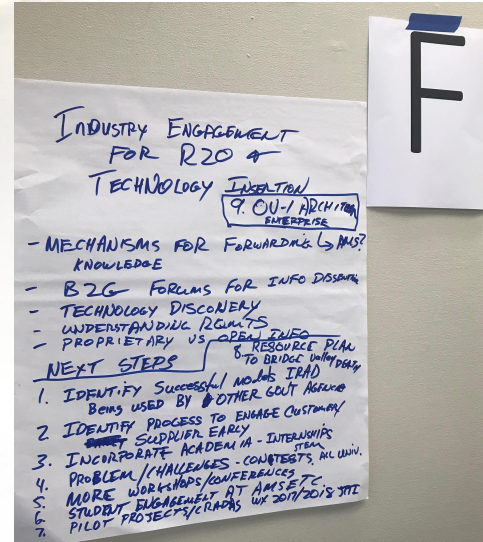 F
INDUSTRY ENGAGEMENT
FOR R20 &
TECHNOLOGY INSERTION
9. OV-1 ARCHITEC
ENTERPRISE
- MECHANISMS FOR FORWARDING ↳ AMS?
KNOWLEDGE
- B2G FORUMS FOR INFO
- TECHNOLOGY DISCOVERY
- UNDERSTANDING RQMTS
- PROPRIETARY VS OPEN INFO
NEXT STEPS
8. RESOURCE PLAN
TO BRIDGE Valley DEATH
1. IDENTIFY Successful models IRAD
Being used BY OTHER GOVT AGENCIE
2 IDENTIFY PROCESS TO ENGAGE CUSTOMER/
SUPPLIER EARLY
3. INCORPORATE ACADEMIA - INTERNSHIPS
STEM
4. PROBLEM/CHALLENGES - CONSTESTS, UNIV.
5. MORE WORKSHOPS/CONFERENCES
6 STUDENT ENGAGEMENT AT AMSETC
7. PILOT PROJECTS/CRADAS WX 2017/2018